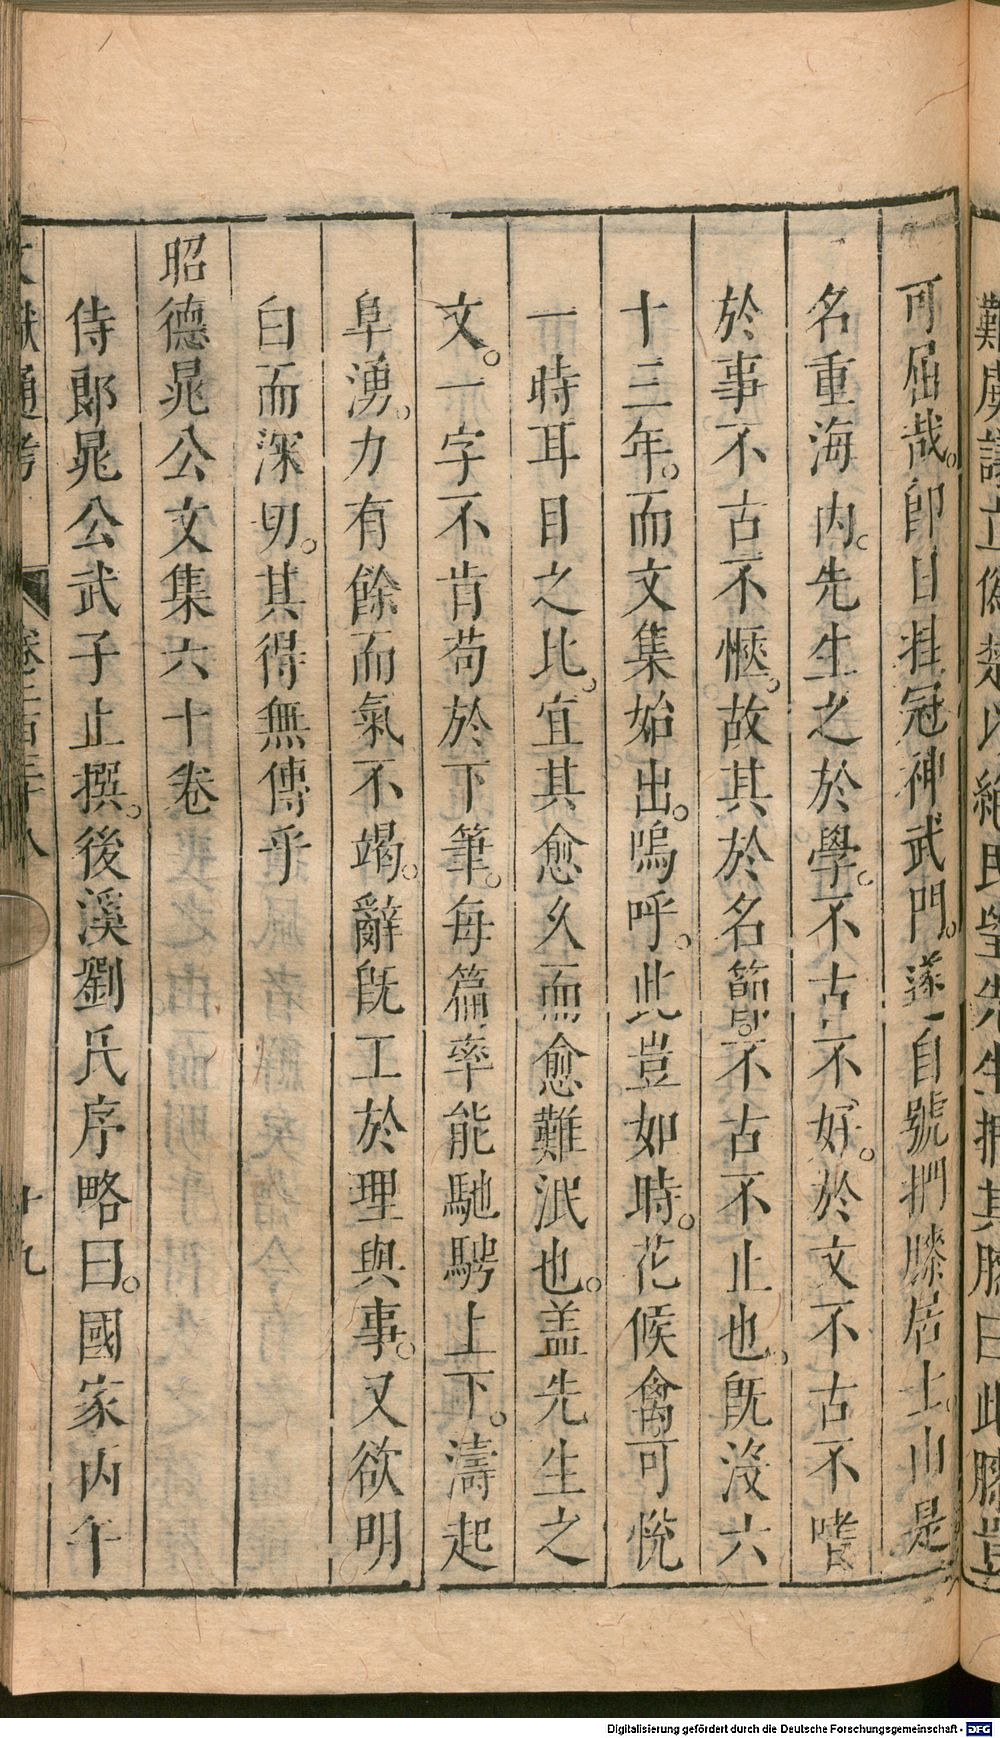 難虜議立僞楚以絶民望先生捫其膝曰此膝豈
可屈哉。卽日挂冠神武門。遂自號捫膝居士。由是
名重海內。先生之於學。不古不好。於文不古不嗜
於事不古不愜。故其於名節。不古不止也。旣沒六
十三年。而文集始出。嗚呼。此豈如時。花候禽可悅
一時耳目之比。宜其愈久而愈難泯也。盖先生之
文。一字不肯苟於下筆。每篇率能馳騁上下。濤起
阜湧。力有餘而氣不竭。辭旣工於理與事。又欲明
白而深切。其得無傳乎
昭德晁公文集六十卷
侍郎晁公武子止撰。後溪劉氏序略曰。國家丙午
文獻通考 卷二百三十八 十九
Digitalisierung gefördert durch die Deutsche Forschungsgemeinschaft - DFG